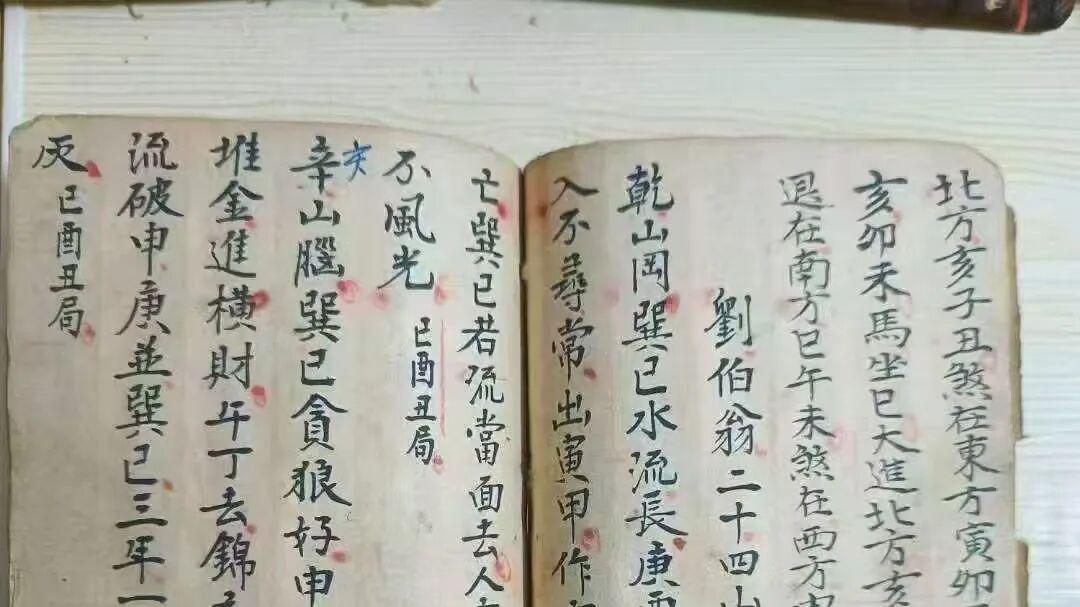 北方亥子丑煞在東方寅卯
亥卯未馬坐巳大進北方亥
退在南方巳午未煞在西方申
劉伯翁二十四山
乾山岡巽巳水流長庚酉
入不尋常出寅甲作
亡巽巳若流當面去人
不風光 巳酉丑局
亥
辛山腦巽巳貪狼好申
堆金進橫財午丁去錦
流破申庚並巽巳三年一
灰 巳酉丑局